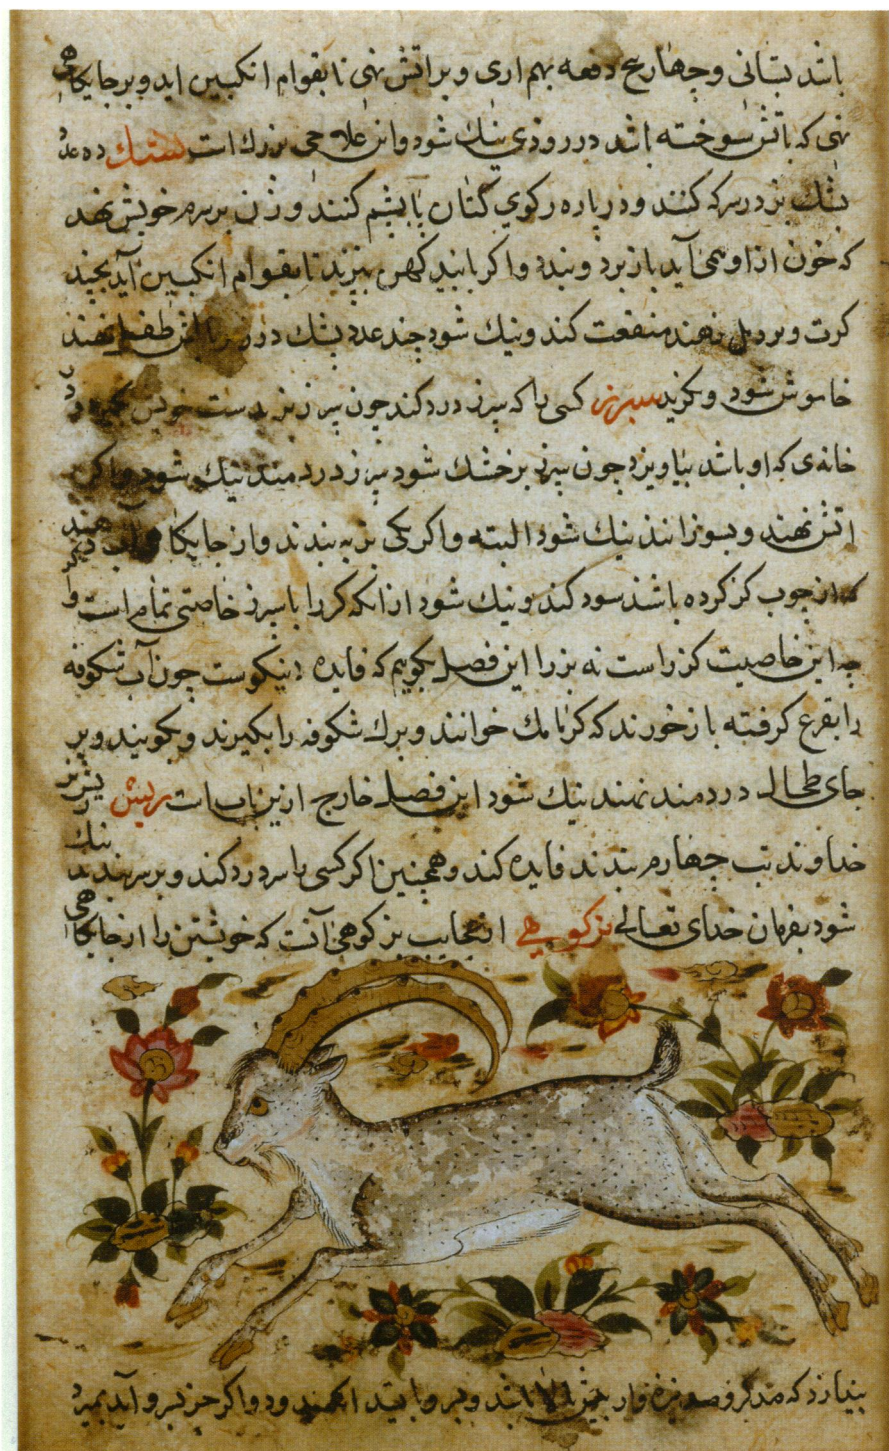 باشد بستانی و چهار پنج دفعه بهم اری و براتش نهی تا بقوام انکبین اید و بر جایکاهی
نهی که باتش سوخته باشد در روزی نیك شود و این علاجی بزرك است پشك ده عدد
پشك بز در سرکه کنند و در پاره رکوی کتان یا پشم کنند و زن بر سرم خویش نهد
که خون از او همی آید باز برد و ببندد و اکر با نبید کهن بپزند تا بقوام انکبین آید پنجید
کرت و بر دمل نهند منفعت کند و نیك شود چند عدد پشك در زیر بالش طفل نهند
خاموش شود و نکرید سپرز کسی را که سپرز درد کند چون سپرز بز بدست خویش در
خانه‌ی که او باشد بیاویزد چون سپرز بز خشك شود سپرز دردمند نیك شود و اکر بر
اتش نهند و بسوزانند نیك شود البته و اکر یکی بز به بندند و از جایکاهی آب دهند
که از چوب کز کرده باشند سود کند و نیك شود از انکه کز را با سپرز خاصیتی تمام است و
چه این خاصیت کز راست نه بز را این فصل بکویم که فایده نیکوست چون آب شکوفه
را بقرع کرفته باز خورند که کزنامك خوانند و برك شکوفه را بکیرند و بکوبند و بر
جای طحال دردمند نهند نیك شود این فصل خارج ازین باب است ریش ریش بز بر
خداوند تب چهارم بندند فایده کند و همچنین اکر کسی را سر درد کند و بر سر بندند نیك
شود بفرمان خدای تعالی بز کوهی از عجایب بز کوهی آنست که خویشتن را از جایکاهی
بیندازد که صد نیزه وار باشد و بر وی آید بمیرد